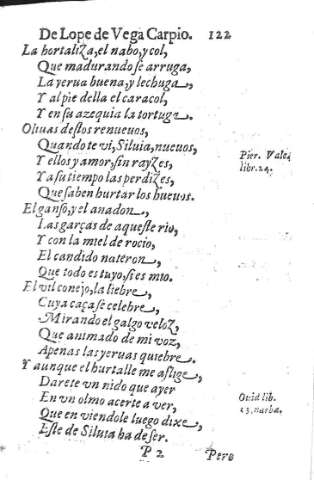 De Lope de Vega Carpio. 122
La hortaliza, el nabo, y col,
Que madurando se arruga,
La yerua buena, y lechuga,
Y al pie della el caracol,
Y en su azequia la tortuga.
Oliuas destos renueuos,
Quando te vi, Siluia, nueuos,
Y ellos y amor, sin rayzes,
Y a su tiempo las perdizes,
Que saben hurtar los hueuos.
Pier. Vale.
libr. 24.
El ganso, y el anadon,
Las garças de aqueste rio,
Y con la miel de rocio,
El candido nateron,
Que todo es tuyo, si es mio.
El vil conejo, la liebre,
Cuya caça se celebre,
Mirando el galgo veloz,
Que animado de mi voz,
Apenas las yeruas quiebre.
Y aunque el hurtalle me aflige,
Darete vn nido que ayer
En vn olmo acerte a ver,
Que en viendole luego dixe,
Este de Siluia ha de ser.
Ouid lib.
P 2 Pero